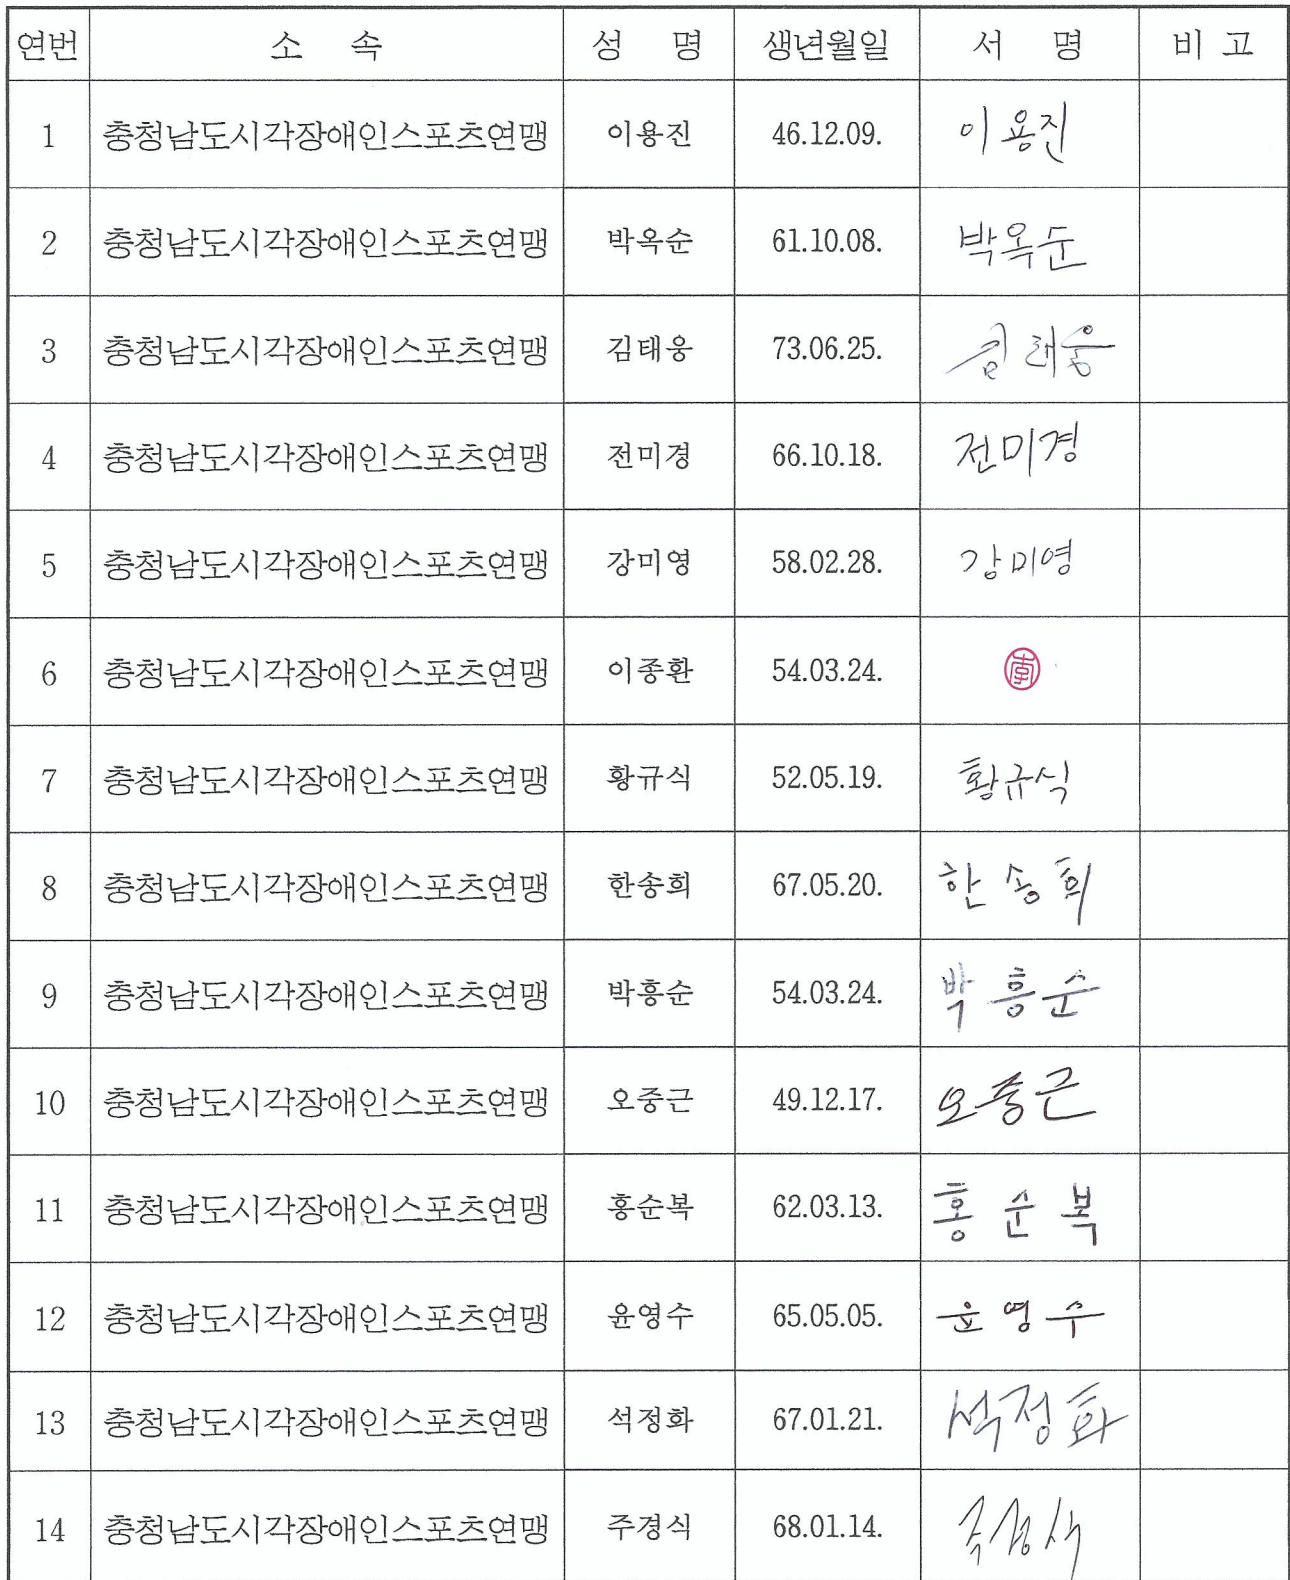 연번 소 속 성 명 생년월일 서 명 비 고
1 충청남도시각장애인스포츠연맹 이용진 46.12.09. 이용진
2 충청남도시각장애인스포츠연맹 박옥순 61.10.08. 박옥순
3 충청남도시각장애인스포츠연맹 김태웅 73.06.25. 김태웅
4 충청남도시각장애인스포츠연맹 전미경 66.10.18. 전미경
5 충청남도시각장애인스포츠연맹 강미영 58.02.28. 강미영
6 충청남도시각장애인스포츠연맹 이종환 54.03.24. 李
7 충청남도시각장애인스포츠연맹 황규식 52.05.19. 황규식
8 충청남도시각장애인스포츠연맹 한송희 67.05.20. 한송희
9 충청남도시각장애인스포츠연맹 박흥순 54.03.24. 박흥순
10 충청남도시각장애인스포츠연맹 오중근 49.12.17. 오중근
11 충청남도시각장애인스포츠연맹 홍순복 62.03.13. 홍순복
12 충청남도시각장애인스포츠연맹 윤영수 65.05.05. 윤영수
13 충청남도시각장애인스포츠연맹 석정화 67.01.21. 석정화
14 충청남도시각장애인스포츠연맹 주경식 68.01.14.